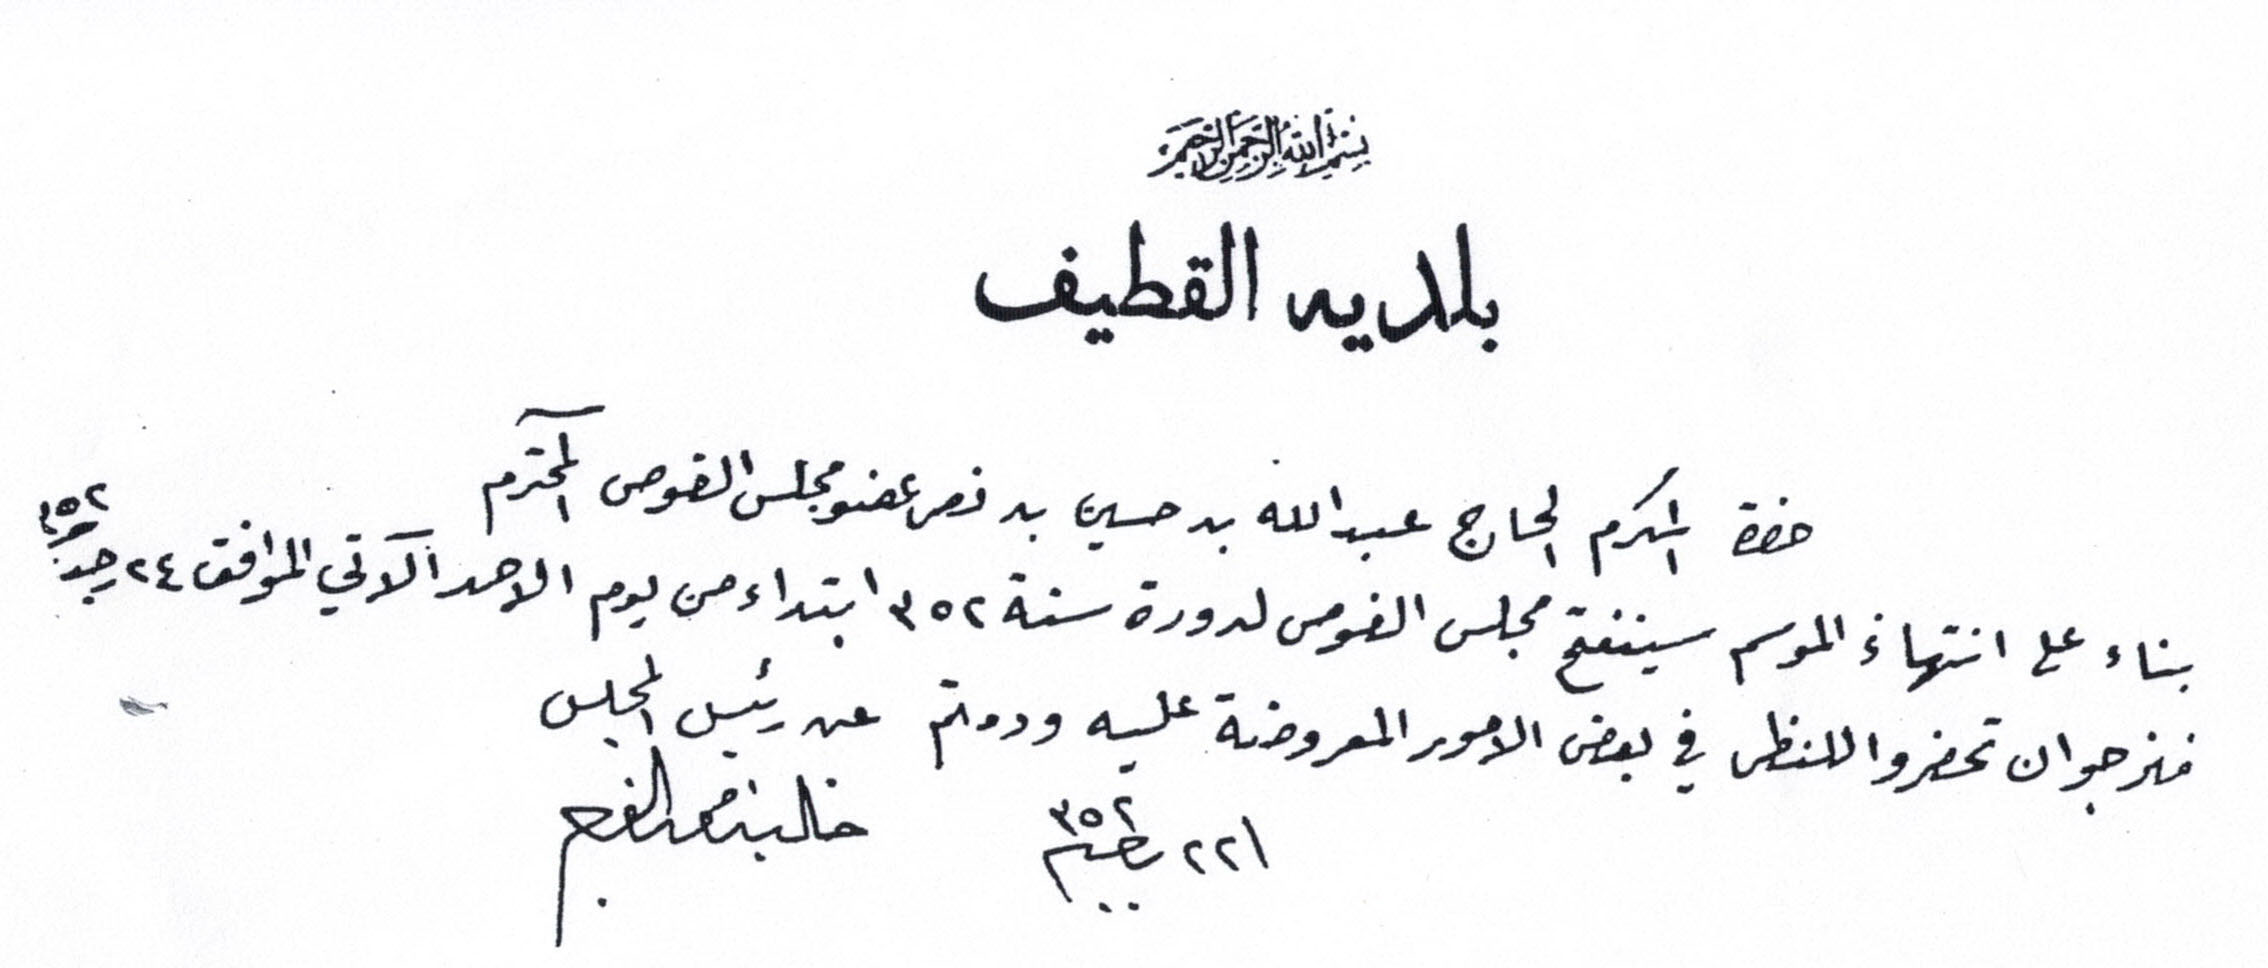 بسم الله الرحمن الرحيم
بلديه القطيف
حضرة المكرم الحاج عبدالله بن حسين بن نصر عضو مجلس الغوص المحترم
بناء على انتهاء الموسم سينفتح مجلس الغوص لدورة سنة ٣٥٢ ابتداء من يوم الاحد الآتي الموافق ٢٤ رجب ٣٥٢
فنرجو ان تحضروا للنظر في بعض الامور المعروضة عليه ودمتم عن رئيس المجلس
٣٥٢